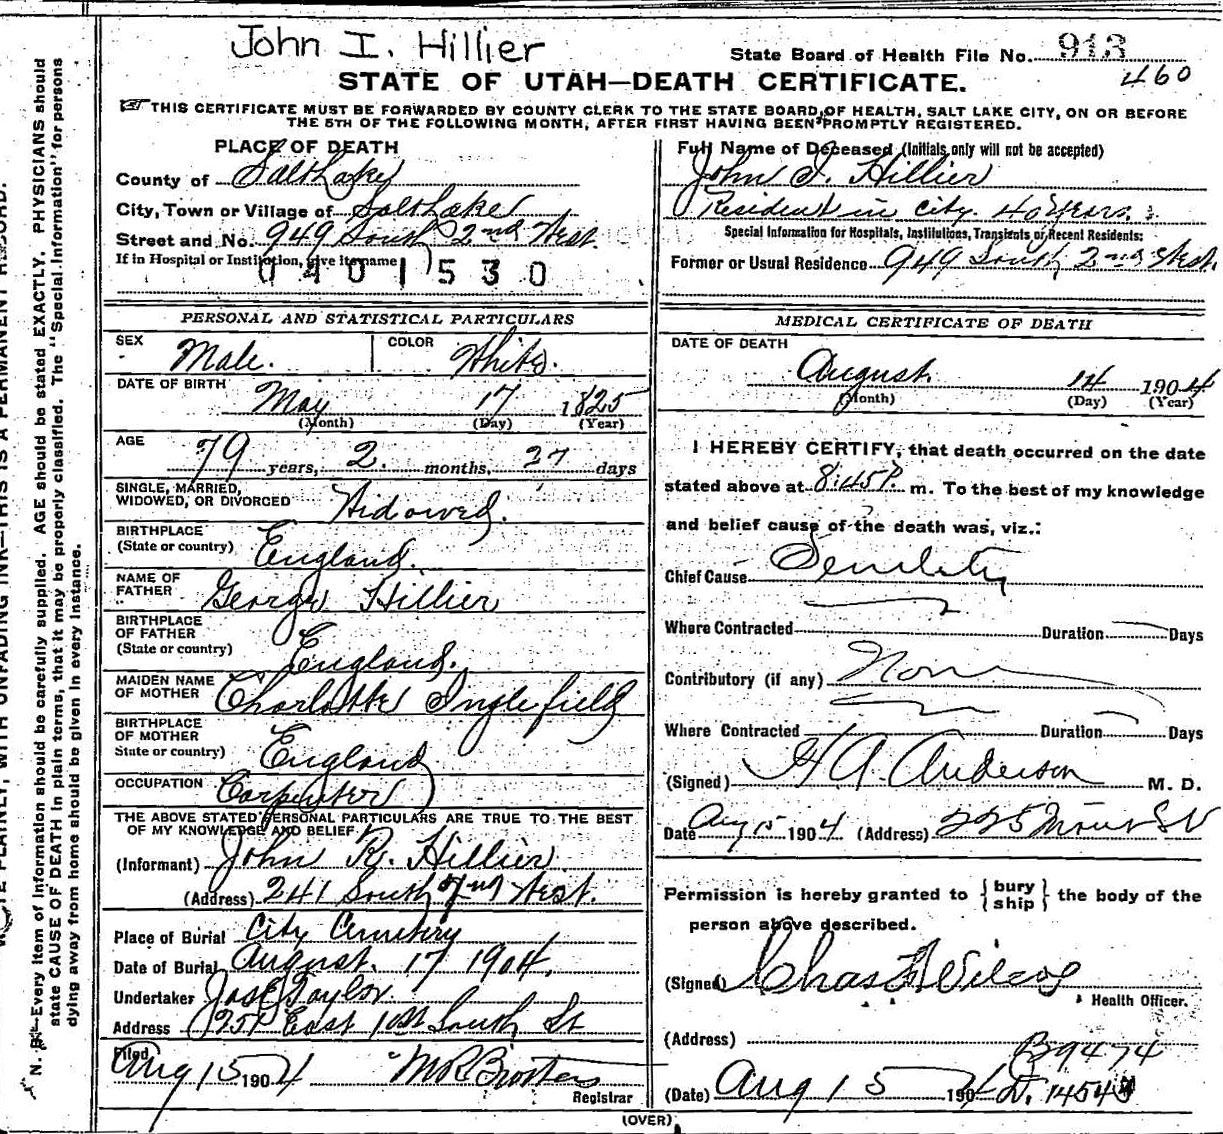 John I. Hillier
State Board of Health File No. 913
460
STATE OF UTAH—DEATH CERTIFICATE.
THIS CERTIFICATE MUST BE FORWARDED BY COUNTY CLERK TO THE STATE BOARD OF HEALTH, SALT LAKE CITY, ON OR BEFORE
THE 5TH OF THE FOLLOWING MONTH, AFTER FIRST HAVING BEEN PROMPTLY REGISTERED.
PLACE OF DEATH
County of Salt Lake
City, Town or Village of Salt Lake
Street and No. 949 South 2nd West
If in Hospital or Institution, give its name
0401530
Full Name of Deceased (Initials only will not be accepted)
John I. Hillier
Resident in city. 40 Years.
Special Information for Hospitals, Institutions, Transients or Recent Residents:
Former or Usual Residence 949 South 2nd West.
PERSONAL AND STATISTICAL PARTICULARS
SEX Male.
COLOR White.
DATE OF BIRTH
May 17 1825
(Month) (Day) (Year)
AGE
79 years, 2. months, 27 days
SINGLE, MARRIED,
WIDOWED, OR DIVORCED Widowed.
BIRTHPLACE
(State or country) England.
NAME OF
FATHER George Hillier
BIRTHPLACE
OF FATHER
(State or country) England.
MAIDEN NAME
OF MOTHER Charlotte Inglefield
BIRTHPLACE
OF MOTHER
State or country) England
OCCUPATION Carpenter
THE ABOVE STATED PERSONAL PARTICULARS ARE TRUE TO THE BEST
OF MY KNOWLEDGE AND BELIEF
(Informant) John R. Hillier
(Address) 241 South 2nd West.
Place of Burial City Cemetery
Date of Burial August. 17 1904.
Undertaker Jos E Taylor
Address 251 East 1st South St
Filed
Aug 15 1904
Registrar
MEDICAL CERTIFICATE OF DEATH
DATE OF DEATH
August. 14 1904
(Month) (Day) (Year)
I HEREBY CERTIFY, that death occurred on the date
stated above at 8:45 P. m. To the best of my knowledge
and belief cause of the death was, viz.:
Chief Cause Senility
Where Contracted Duration Days
Contributory (if any) None
Where Contracted Duration Days
(Signed) H A Anderson M. D.
Date Aug 15 1904 (Address) 225
Permission is hereby granted to { bury ship } the body of the
person above described.
(Signed) Chas F Wilcox
Health Officer.
(Address)
B9474
(Date) Aug 15 1904 D. 1454
(OVER)
N. B.—Every item of information should be carefully supplied. AGE should be stated EXACTLY. PHYSICIANS should
state CAUSE OF DEATH in plain terms, that it may be properly classified. The "Special Information" for persons
dying away from home should be given in every instance.
PLAINLY, WITH UNFADING INK—THIS IS A PERMANENT RECORD.